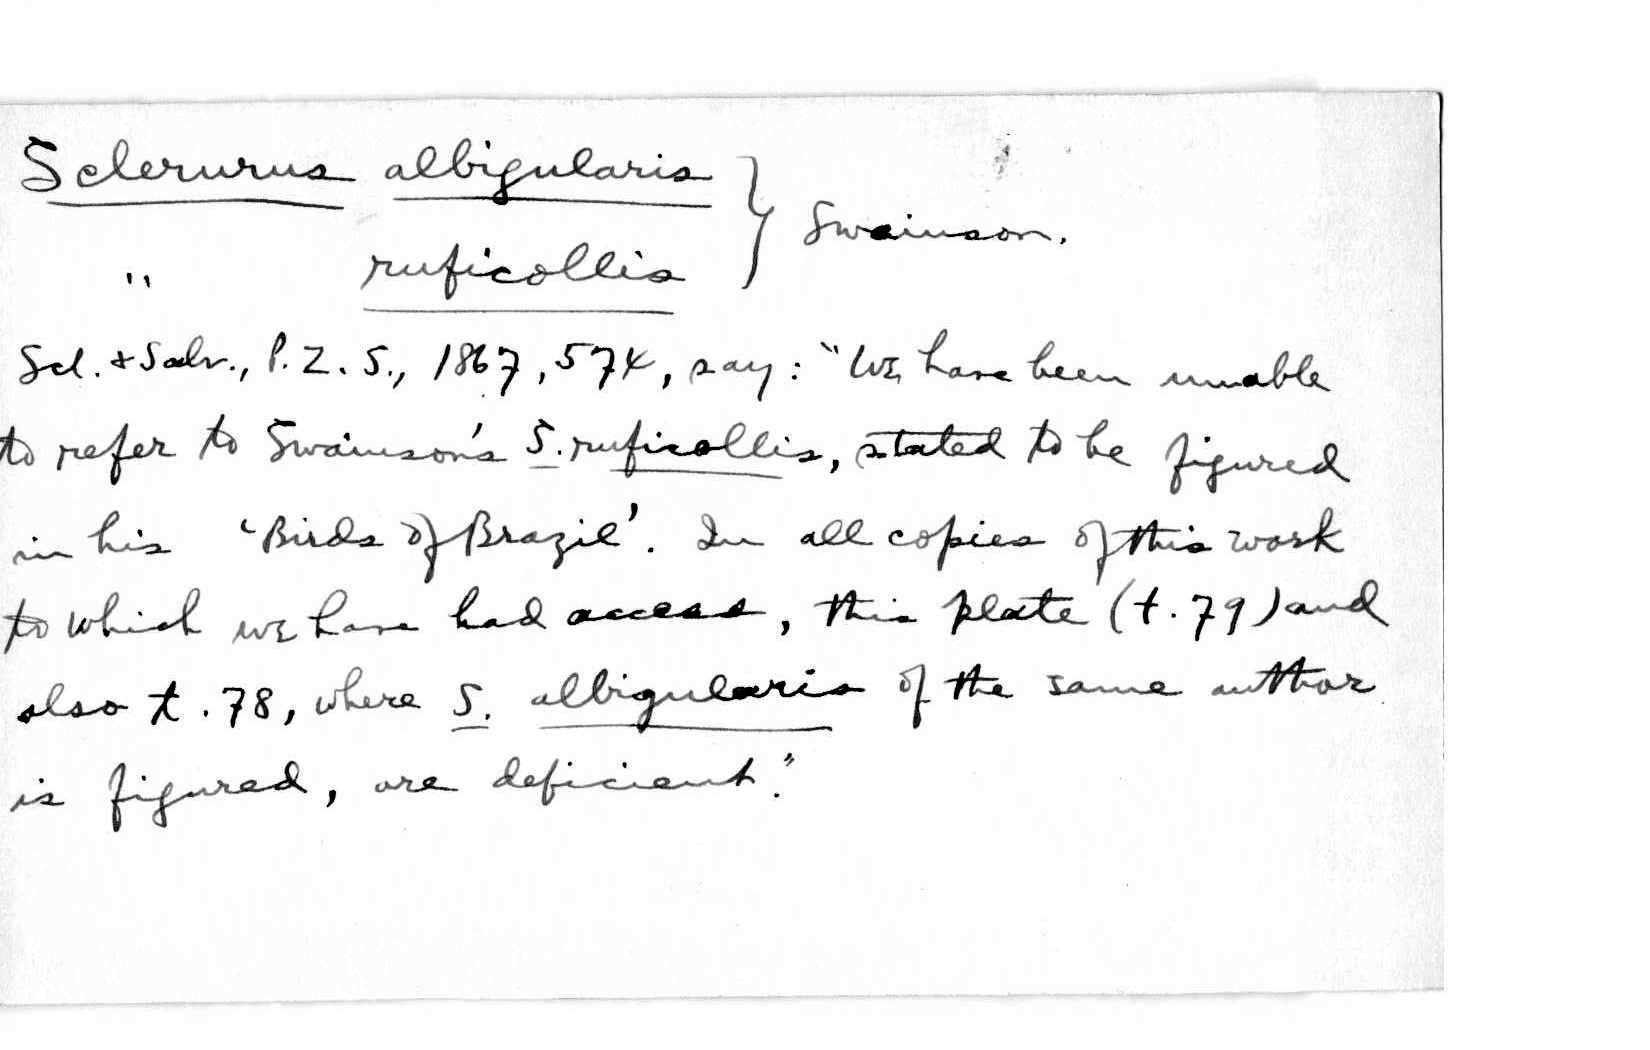 Sclerurus albigularis } Swainson.
" ruficollis
Scl. & Salv., P. Z. S., 1867, 574, say: "We have been unable
to refer to Swainson's S. ruficollis, stated to be figured
in his 'Birds of Brazil'. In all copies of this work
to which we have had access, this plate (t. 79) and
also t. 78, where S. albigularis of the same author
is figured, are deficient."